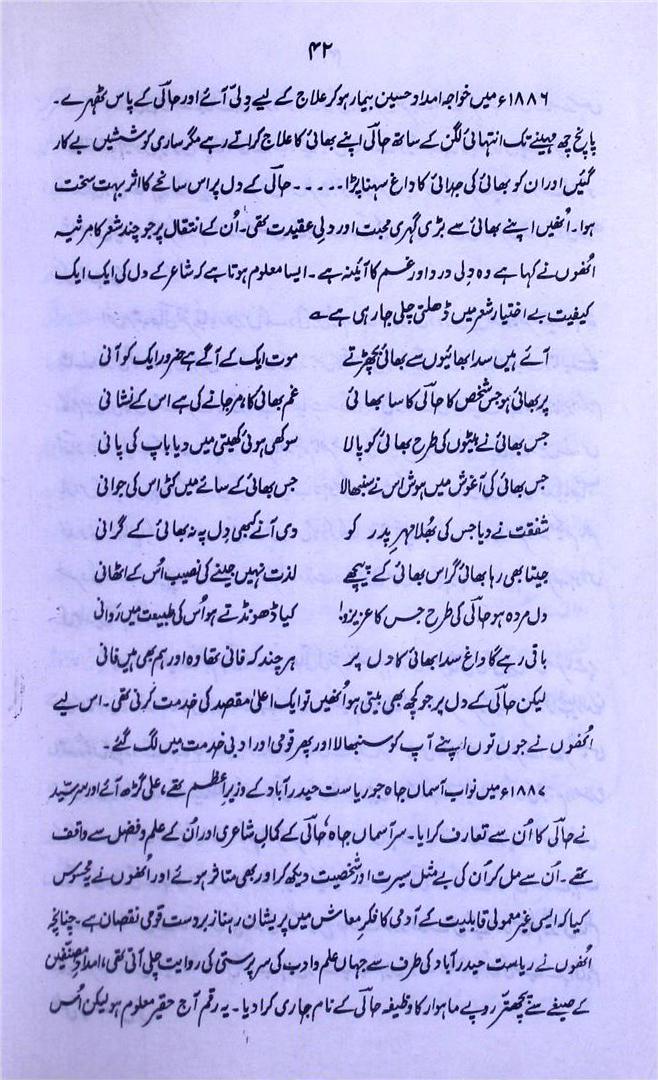 ۴۲
۱۸۸۶ء میں خواجہ امداد حسین بیمار ہوکر علاج کے لیے دِلّی آئے اور حالؔی کے پاس ٹھہرے۔
پانچ چھ مہینے تک انتہائی لگن کے ساتھ حالؔی اپنے بھائی کا علاج کراتے رہے مگر ساری کوششیں بے کار
گئیں اور ان کو بھائی کی جدائی کا داغ سہنا پڑا ۔۔۔۔۔ حالؔی کے دل پر اس سانحے کا اثر بہت سخت
ہوا۔ اُنھیں اپنے بھائی سے بڑی گہری محبت اور دلی عقیدت تھی۔ اُن کے انتقال پر جو چند شعر کا مرثیہ
انھوں نے کہا ہے وہ دِلی درد اور غم کا آئینہ ہے۔ ایسا معلوم ہوتا ہے کہ شاعر کے دل کی ایک ایک
کیفیت بے اختیار شعر میں ڈھلتی چلی جا رہی ہے ؎
آئے ہیں سدا بھائیوں سے بھائی بچھڑتے موت ایک کے آگے ہے ضرور ایک کو آنی
پر بھائی ہو جس شخص کا حالؔی کا سا بھائی غم بھائی کا مر جانے کی ہے اس کے نشانی
جس بھائی نے بیٹوں کی طرح بھائی کو پالا سوکھی ہوئی کھیتی میں دیا باپ کی پانی
جس بھائی کی آغوش میں ہوش اس نے سنبھالا جس بھائی کے سائے میں کٹی اس کی جوانی
شفقت نے دیا جس کی بھُلا مہرِ پدر کو دی آنے کبھی دِل پہ نہ بھائی کے گرانی
جیتا بھی رہا بھائی گر اس بھائی کے پیچھے لذت نہیں جینے کی نصیب اُس کے اٹھانی
دل مردہ ہو حالؔی کی طرح جس کا عزیزو! کیا ڈھونڈتے ہو اُس کی طبیعت میں رَوانی
باقی رہے گا داغ سدا بھائی کا دل پر ہر چند کہ فانی تھا وہ اور ہم بھی ہیں فانی
لیکن حالؔی کے دل پر جو کچھ بھی بیتی ہو اُنھیں تو ایک اعلیٰ مقصد کی خدمت کرنی تھی۔ اس لیے
انھوں نے جوں توں اپنے آپ کو سنبھالا اور پھر قومی اور ادبی خدمت میں لگ گئے۔
۱۸۸۷ء میں نواب آسماں جاہ جو ریاست حیدرآباد کے وزیرِاعظم تھے، علی گڑھ آئے اور سرسیّد
نے حالؔی کا اُن سے تعارف کرایا۔ سر آسماں جاہ، حالؔی کے کمالِ شاعری اور اُن کے علم و فضل سے واقف
تھے۔ اُن سے مل کر اُن کی بے مثل سیرت اور شخصیت دیکھ کر اور بھی متاثر ہوئے اور انھوں نے یہ محسوس
کیا کہ ایسی غیر معمولی قابلیت کے آدمی کا فکرِ معاش میں پریشان رہنا زبردست قومی نقصان ہے۔ چنانچہ
انھوں نے ریاست حیدرآباد کی طرف سے جہاں علم و ادب کی سرپرستی کی روایت چلی آتی تھی، امدادِ مصنّفین
کے صیغے سے پچھتّر روپے ماہوار کا وظیفہ حالؔی کے نام جاری کرا دیا۔ یہ رقم آج حقیر معلوم ہو لیکن اُس